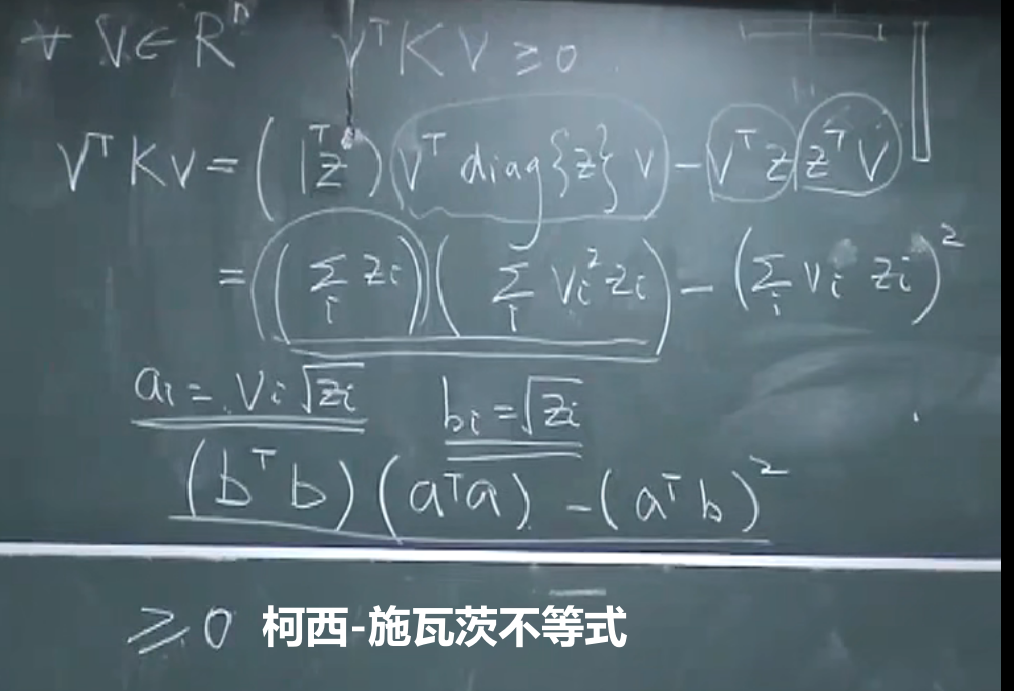 ∀ V ∈ Rⁿ  Vᵀ K V ≥ 0
Vᵀ K V = (1ᵀ z)(Vᵀ diag{z} V) − Vᵀ z zᵀ V
= (∑ᵢ zᵢ)(∑ᵢ Vᵢ² zᵢ) − (∑ᵢ Vᵢ zᵢ)²
aᵢ = Vᵢ √zᵢ  bᵢ = √zᵢ
(bᵀ b)(aᵀ a) − (aᵀ b)²
≥ 0 柯西-施瓦茨不等式